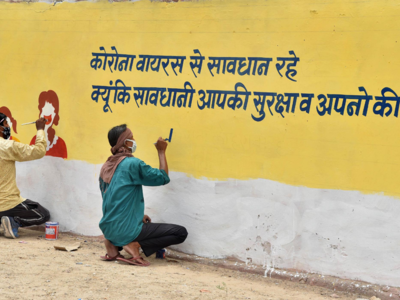 कोरोना वायरस से सावधान रहे
क्यूंकि सावधानी आपकी सुरक्षा व अपनो की